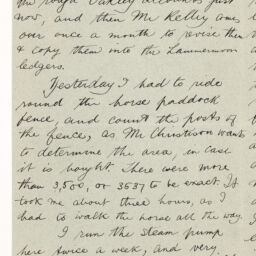 the rough Oakley accounts just
now, and then Mr Kelley comes
over once a month to revise them
& copy them into the Lammermoor
ledgers.
Yesterday I had to ride
round the horse paddock
fence, and count the posts of
the fence, as Mr Christison wants
to determine the area, in case
it is bought. There were more
than 3,500, or 3537 to be exact. It
took me about three hours, as I
had to walk the horse all the way.
I run the steam pump
here twice a week, and very